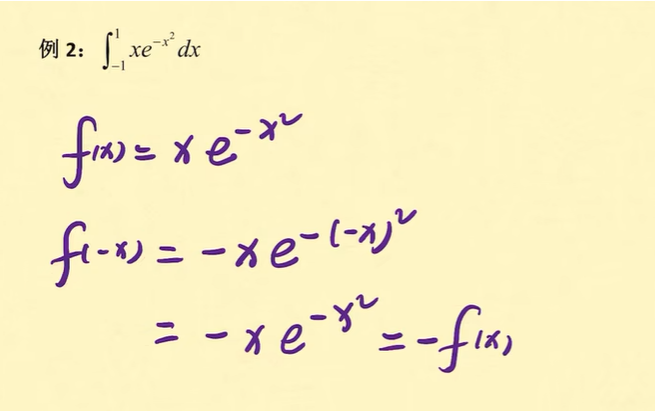 例 2：∫₋₁¹ xe^{-x²} dx
f(x) = x e^{-x²}
f(-x) = -x e^{-(-x)²}
= -x e^{-x²} = -f(x)